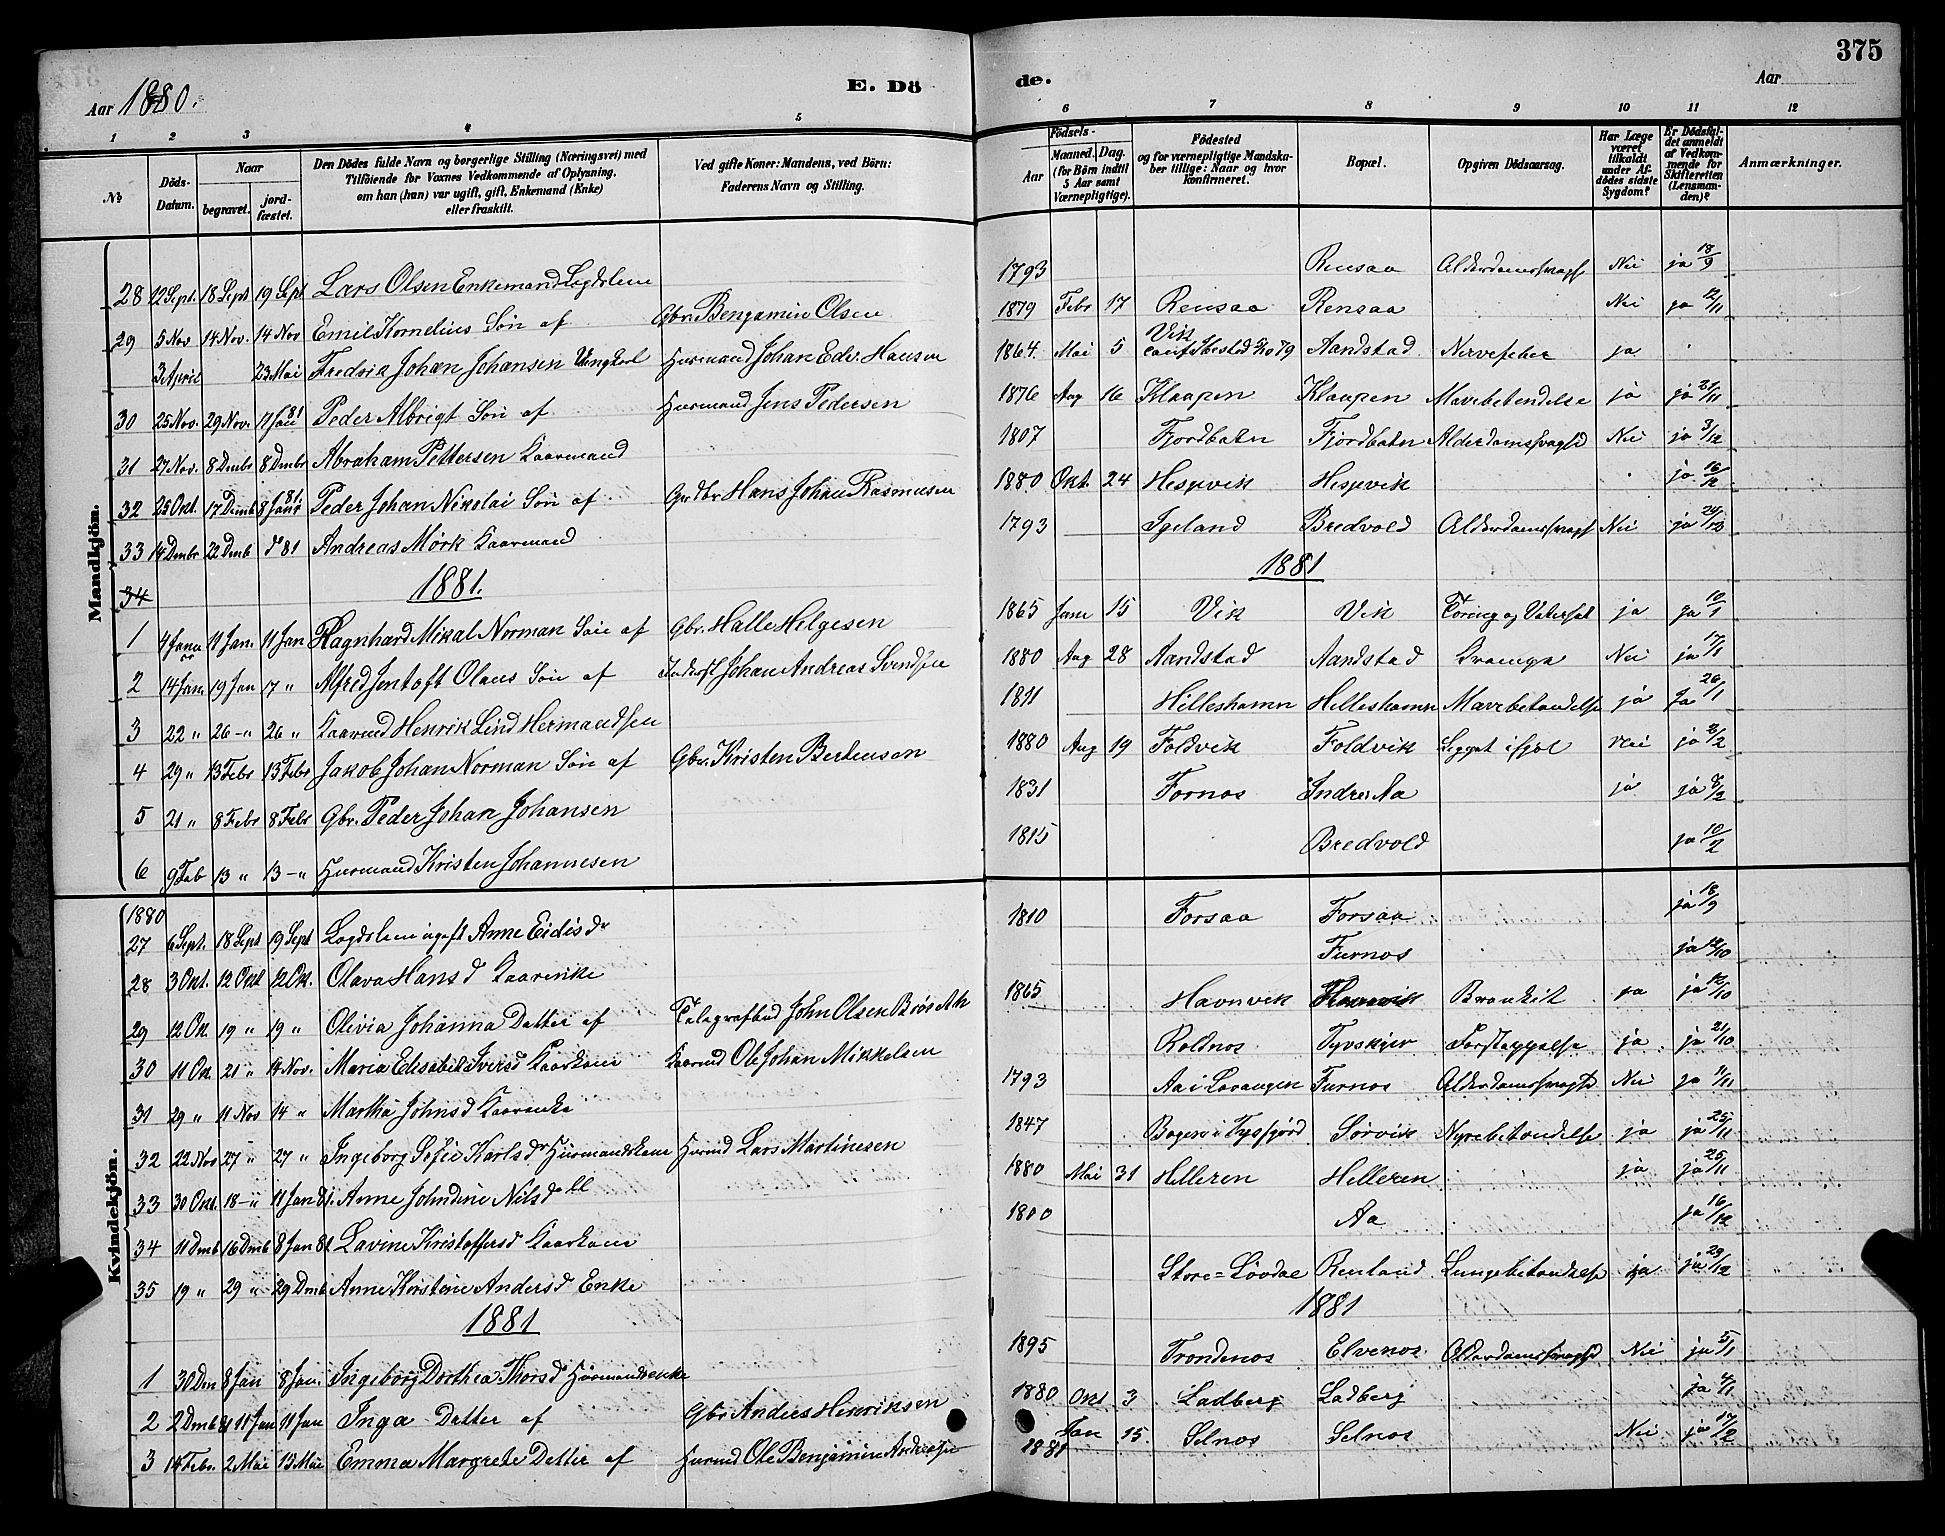 375
Aar 1880.
E. Dö
de.
Aar
1 2 3 4 5
6 7 8 9 10 11 12
№
Döds-Datum.
Naar
begravet.
jord-fæstet.
Den Dödes fulde Navn og borgerlige Stilling (Næringsvei) med
Tilföiende for Voxnes Vedkommende af Oplysning.
om han (hun) var ugift, gift, Enkemand (Enke)
eller fraskilt.
Ved gifte Koner: Mandens, ved Börn:
Faderens Navn og Stilling.
Födsels-
Aar
Maaned. Dag.
(for Börn indtil
5 Aar samt
Værnepligtige).
Födested
og for værnepligtige Mandska-
ber tillige: Naar og hvor
konfirmeret.
Bopæl.
Opgiven Dödsaarsag.
Har Læge
været
tilkaldt
under Af-
dödes sidste
Sygdom?
Er Dödsfal-
det anmeldt
af Vedkom-
mende for
Skifteretten
(Lensman-
den)?
Anmærkninger.
Mandkjön.
28 12 Sept. 18 Sept 19 Sept Lars Olsen Enkemand Legdslem 1793 Rensaa Alderdomssvagh Nei ja 18/9
29 5 Nov 14 Nov. 14 Nov Emil Kornelius Sön af Gbr. Benjamin Olsen 1879 Febr 17 Rensaa Rensaa Nei ja 12/11
3 April 23 Mai Fredrik Johan Johansen Ungkarl Husmand Johan Edv. Hansen 1864. Mai 5 Vik conf Ibestad 79 Aandstad Nervefeber ja
30 25 Nov. 29 Nov. 17 Jan 81 Peder Albrigt Sön af Husmand Jens Pedersen 1876 Aug 16 Klaapen Klaapen Mavebetendelse ja ja 21/11
31 27 Nov. 8 Dmbr 8 Dmbr Abraham Pettersen Kaarmand 1807 Fjordbotn Fjordbotn Alderdomssvaghd Nei ja 3/12
32 25 Okt. 17 Dmb 8 Janr 81. Peder Johan Nikolai Sön af Grdbr Hans Johan Rasmusen 1880 Okt. 24 Hespvik Hespvik ja 16/12
33 14 Dmbr 22 Dmb d 81 Andreas Mörk Kaarmand 1793 Igeland Bredvold Alderdomssvagh Nei ja 24/12
34 1881. 1881
1 4 Janu 11 Jan. 11 Jan Hagnhard Mikal Norman Sön af Gbr. Halle Helgesen 1865 Jan 15 Vik Vik Tæring og Vatersot ja ja 10/1
2 14 Jan. 19 Jan 17 " Alfred Jentoft Olaus Sön af Inderst Johan Andreas Svendsen 1880 Aug 28 Aandstad Aandstad Krampe Nei ja 17/1
3 22 " 26 " 26 " Kaarmd Henrik Lind Hermandsen 1811 Hilleshamn Hilleshamn Mavebetændelse ja ja 26/1
4 29 " 13 Febr 13 Febr Jakob Johan Norman Sön af Gbr. Kristen Bertenson 1880 Aug 19 Foldvik Foldvik Ligget ihjel Nei ja 2/2
5 21 " 8 Febr 8 Febr Gbr. Peder Johan Johansen 1831 Fornos Indre Aa ja ja 8/2
6 9 Feb 13 " 13 " Husmand Kristen Johannesen 1815 Bredvold ja 10/2
Kvindekjön.
1880
27 6 Sept. 18 Sept 19 Sept Legdslem ugift Anne Eidisdr 1810 Forsaa Forsaa ja 18/9
28 3 Okt. 12 Okt 12 Ok. Olava Hansd Kaarenke Furnos ja 12/10
29 12 Ok. 19 " 19 " Olivia Johanna Datter af Telegrafbud John Olsen 1865 Havnvik Havnvik Bronkit ja ja 12/10
30 11 Ok. 21 " 14 Nov. Maria Elisabet Iversd Kaarkone Kaarmd Ole Johan Mikkelsen Roldnos Tyvskjær Forstoppelse ja ja 21/10
31 29 " 11 Nov 14 " Martha Johnsd Kaarenke 1793 Aa i Lavangen Furnos Alderdomssvaghd Nei ja 11/11
32 22 Nov 27 " 27 " Ingeborg Sofie Karlsdr Husmandskone Husmd Lars Martinesen 1847 Bogen i Tysfjord Sörvik Nyrebetændelse ja ja 25/11
33 30 Okt. 18 " 11 Jan 81. Anne Johndine Nilsd 1880 Mai 31 Helleren Helleren ja ja 25/11
34 11 Dmb 16 Dmb 8 Jan 81 Lavine Kristoffersd Kaarkone 1800 Aa ja 16/12
35 19 " 29 " 29 Dmb Anne Kirstine Andersd Enke Store-Lövdal Renland Lungebetændelse ja ja 29/12
1881 1881
1 30 Dm 8 Jan 8 Jan. Ingeborg Dorthea Thorsd Husmandsenke 1895 Trondenos Elvenos Alderdomssvaghd Nei ja 5/1
2 2 Dmb 11 Jan 11 Jan Inga Datter af Gbr Anders Henriksen 1880 Okt 3 Ladberg Ladberg ja 4/1
3 14 Febr. 2 Mai 13 Mai Emma Margrete Datter af Husmd Ole Benjamin Andreasen 1881 Jan 15. Selnos Selnos Nei ja 17/2